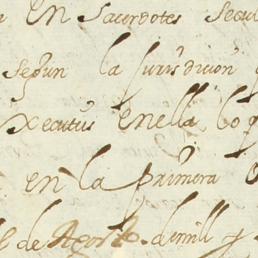 en sacerdotes secul
segun la Jurisdicion q
xecutus en ella lo q
en la primera
de Agosto de mill y